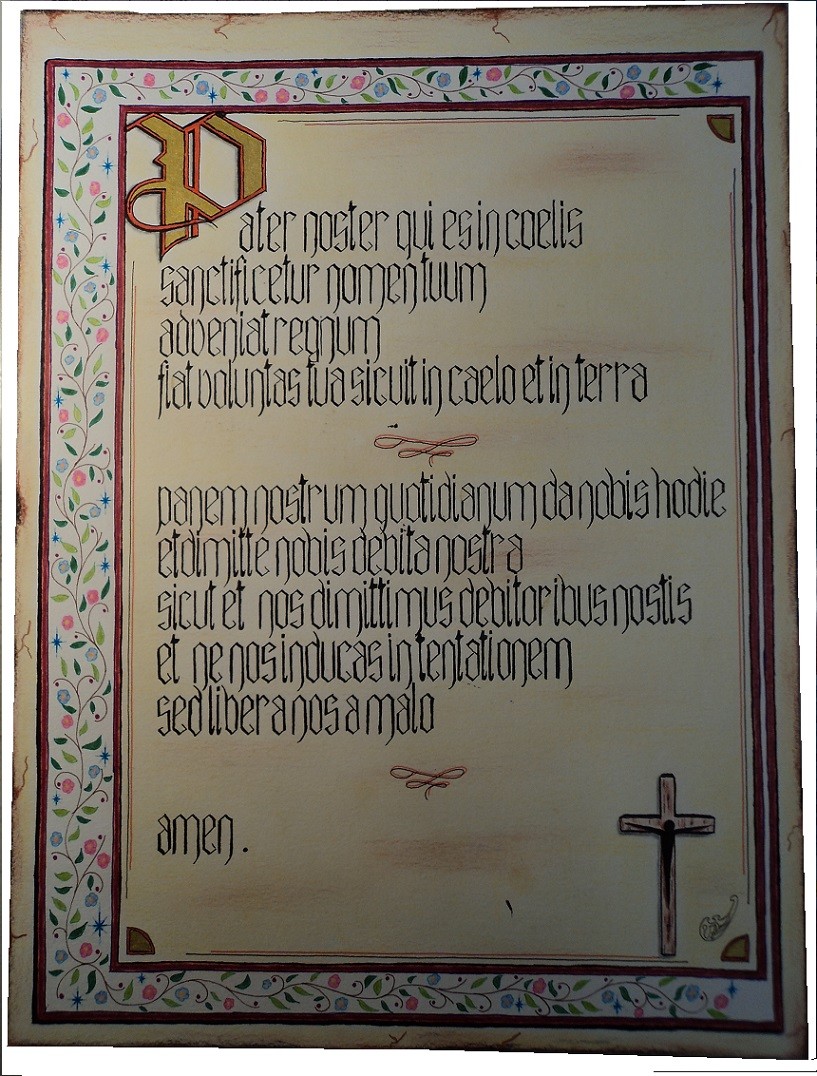 Pater noster qui es in coelis
sanctificetur nomen tuum
adveniat regnum
fiat voluntas tua sicuit in caelo et in terra
panem nostrum quotidianum da nobis hodie
et dimitte nobis debita nostra
sicut et nos dimittimus debitoribus nostis
et ne nos inducas in tentationem
sed libera nos a malo
amen.